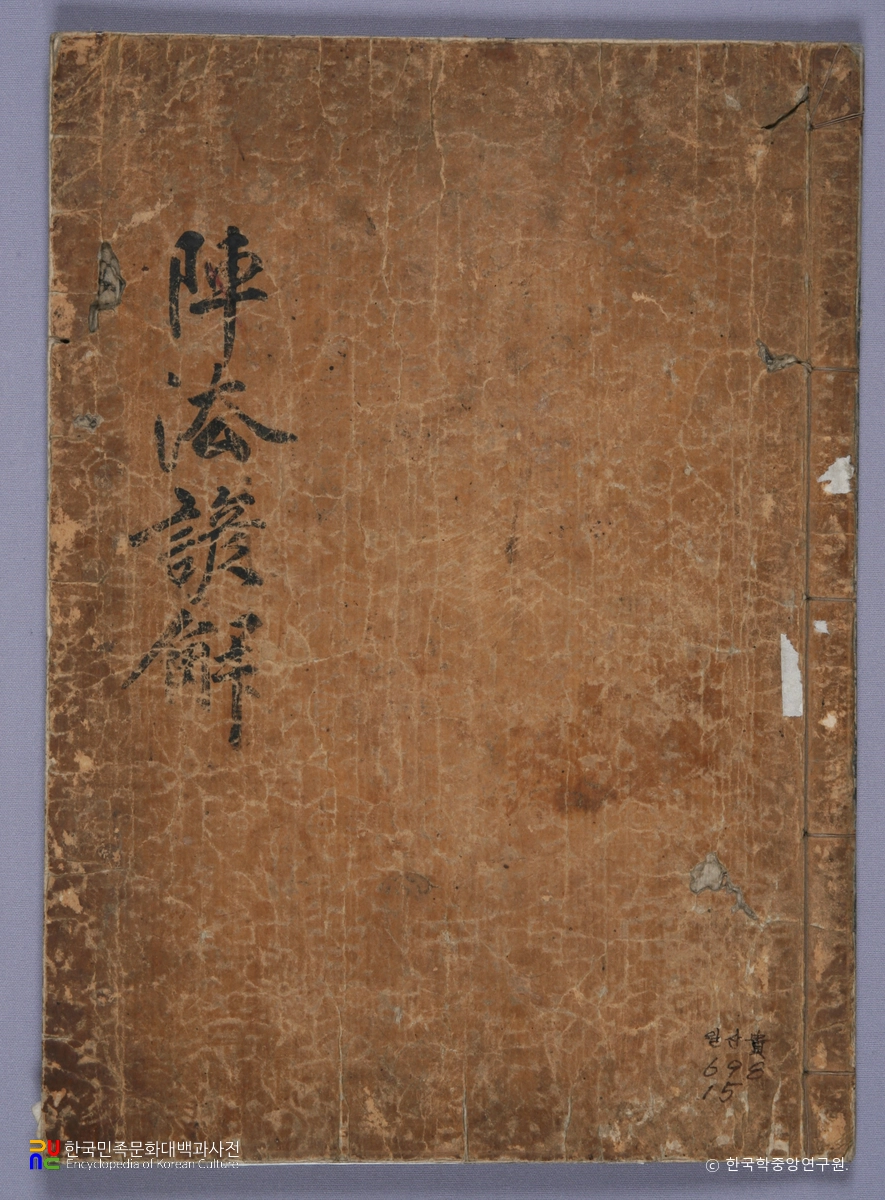 陣法諺解
일산貴
698
15
한국민족문화대백과사전
Encyclopedia of Korean Culture
© 한국학중앙연구원.